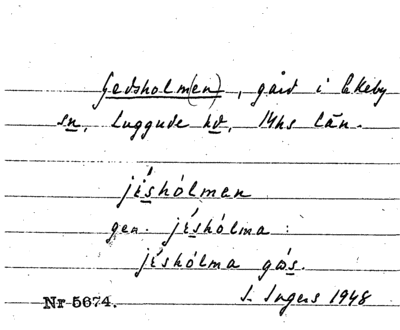 Gedsholm(en), gård i Ekeby
sn, Luggude hd, Mhs län.
jéshólman
gen. jéshólma:
jéshólma gås.
Nr 5674. S. Ingers 1948